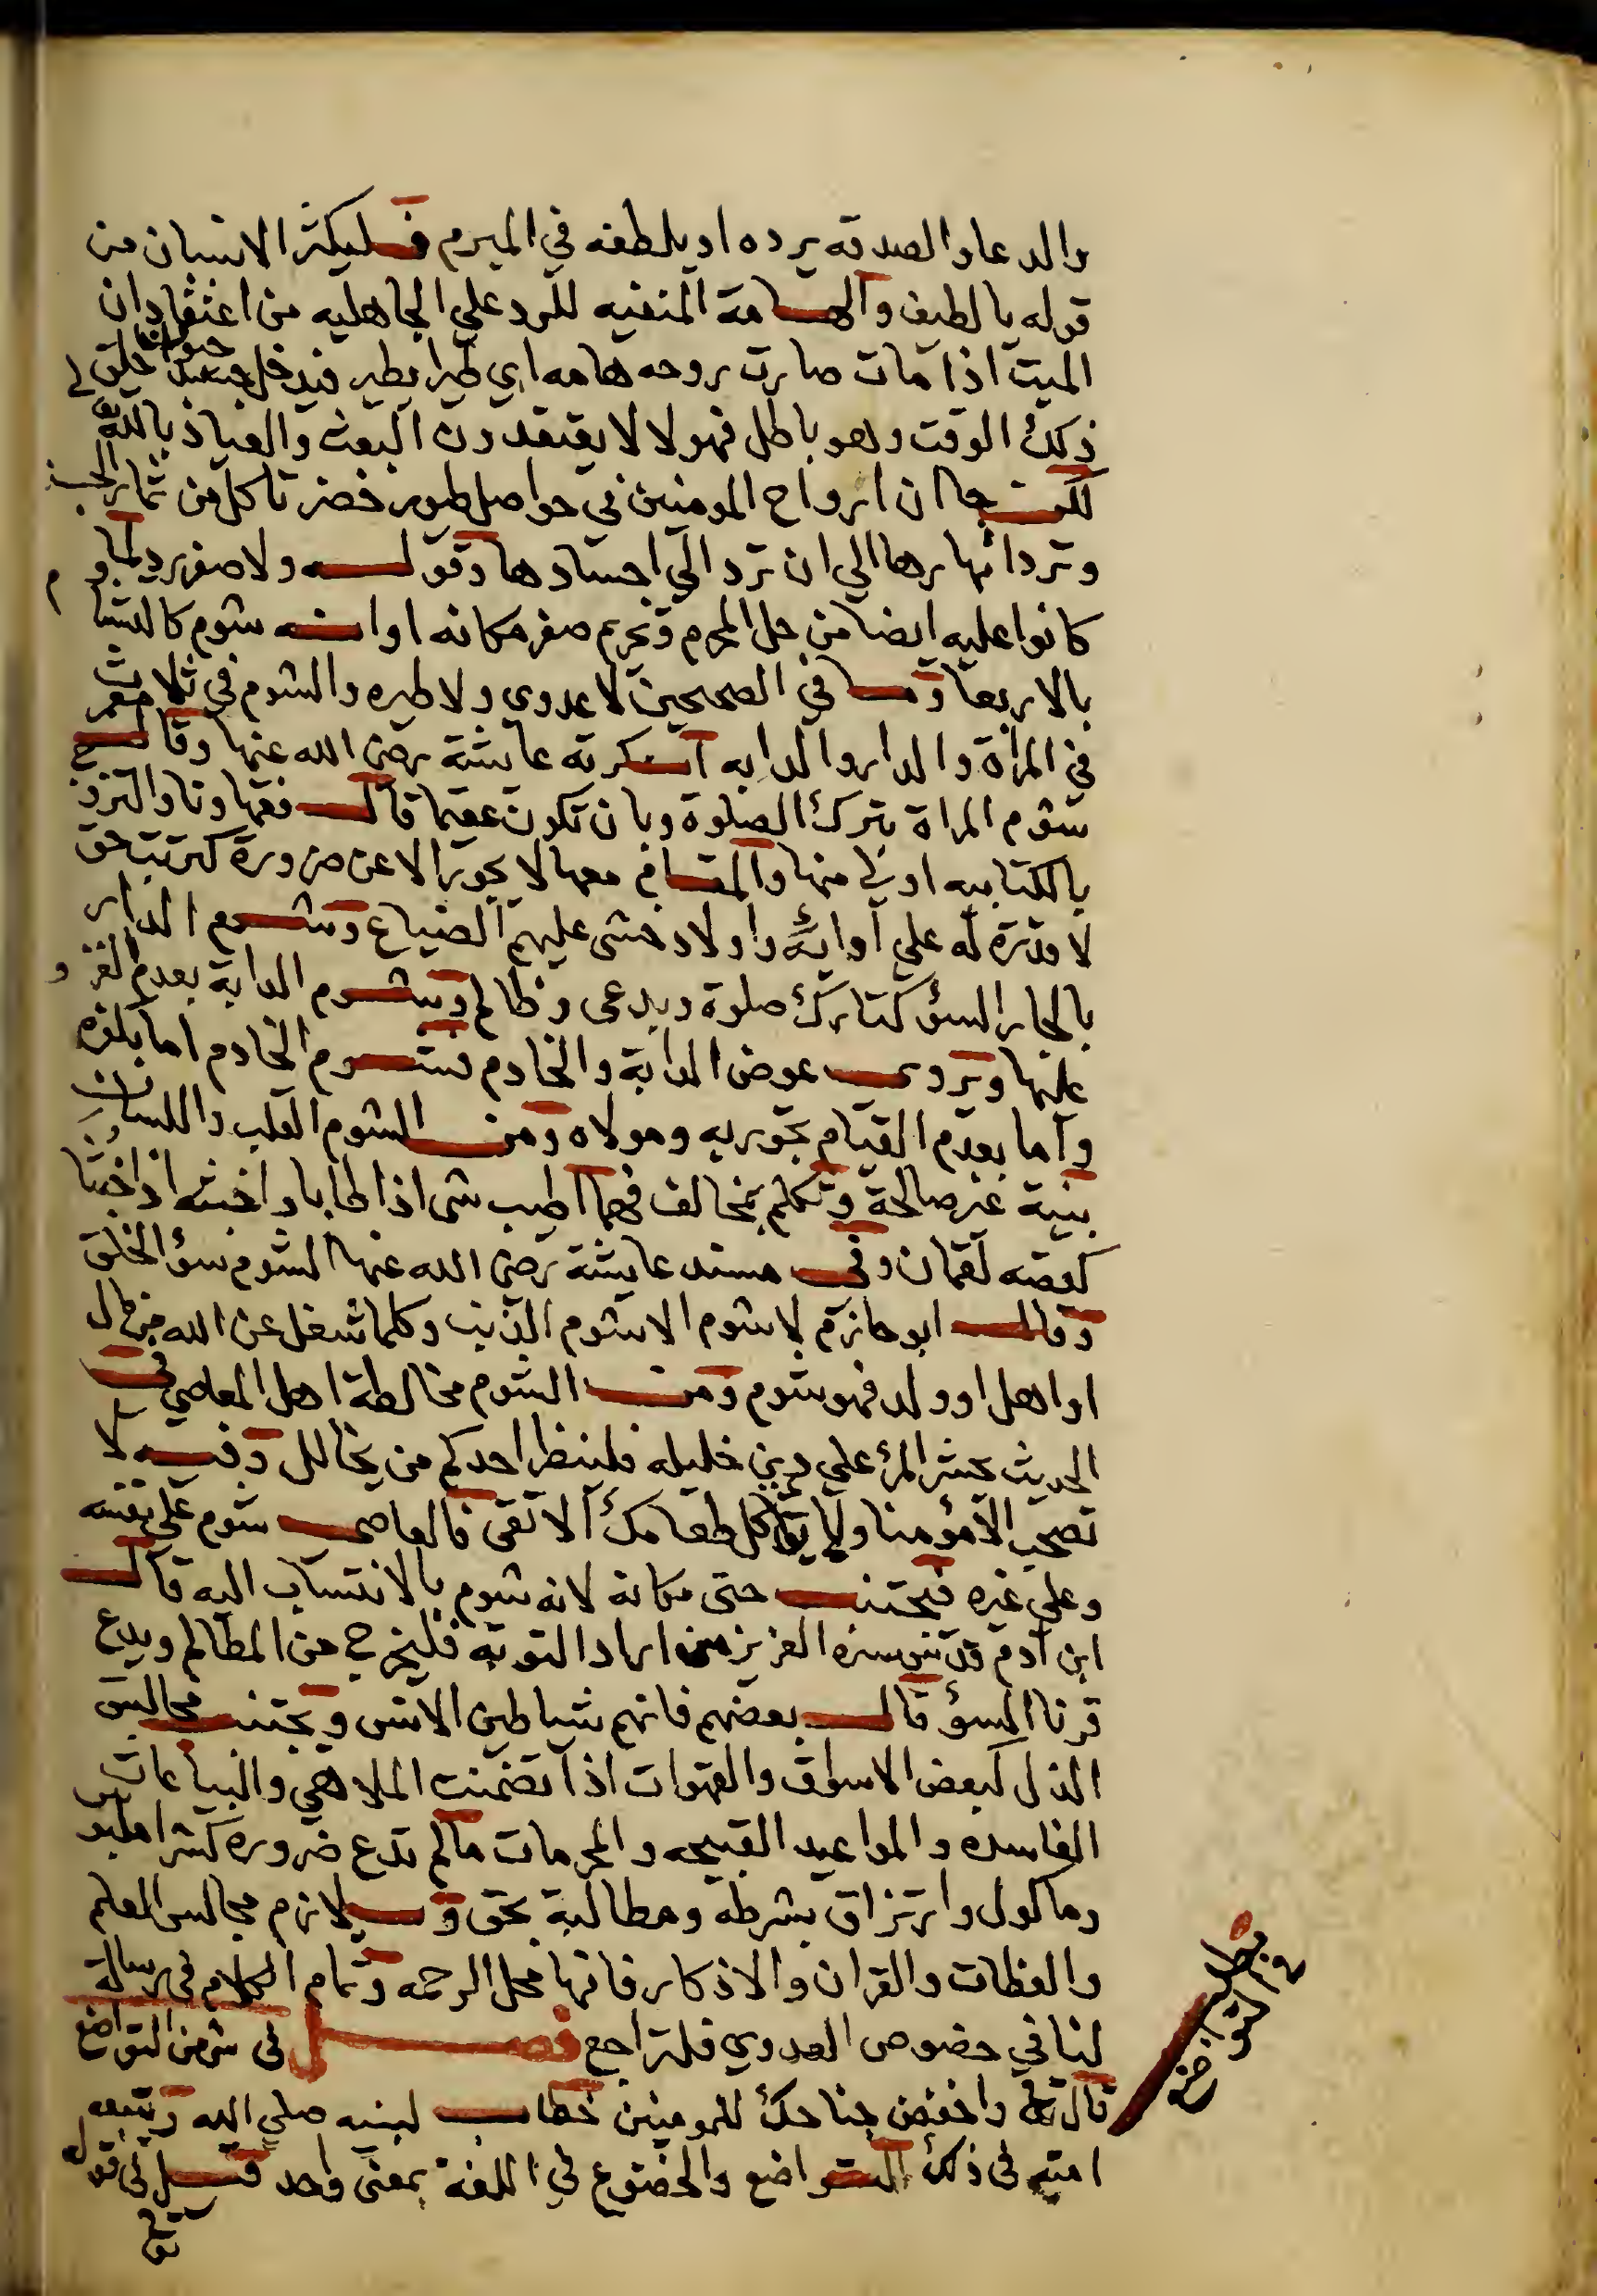 والدعا والصدقه يرده او يلطفه في المبرم فليكثر الانسان من
قوله يا لطيف والهامة المنفيه للرد علي الجاهليه من اعتقاد ان
الميت اذا مات صارت روحه هامه اي طيرا يطير فيدخل حيوانا خلق في
ذلك الوقت وهو باطل فهولا لا يعتقدون البعث والعياذ بالله
لكن جا ان ارواح المومنين في حواصل طيور خضر تاكل من ثمار الجنة
وترد انهارها الي ان ترد الي اجسادها وقوله ولا صفر رد لما
كانوا عليه ايضا من حل المحرم وتحريم صفر مكانه او انه شوم كالتشاوم
بالاربعا وما في الصحيحين لا عدوي ولا طيره والشوم في ثلاث
في المراة والدار والدابه انكرته عايشة رضي الله عنها وقال معمر
شوم المراة بترك الصلوة وبان تكون عقيما قال فقهاونا والتزوج
بالكتابيه اولي منها والمقام معها لا يجوز الا عن ضرورة كترتب حق
لا قدرة له علي ادايه واولاد خشي عليهم الضياع وشوم الدار
بالجار السؤ كتارك صلوة وبدعي وظالم وشوم الدابة بعدم الغزو
عليها وتروي عوض الدابة والخادم فشوم الخادم اما بكفره
واما بعدم القيام بحق ربه ومولاه ومن الشوم القلب واللسان
بنية غير صالحة وتكلم بمخالف فهما اطيب شي اذا طابا واخبثه اذا خبثا
كقصه لقمان وفي مسند عايشة رضي الله عنها الشوم سؤ الخلق
وقال ابو حازم لا شوم الا شوم الذنب وكلما شغل عن الله من مال
او اهل او ولد فهو شوم ومن الشوم مخالطة اهل المعاصي ففي
الحديث يحشر المرؤ علي دين خليله فلينظر احدكم من يخالل وفيه لا
تصحب الا مؤمنا ولا ياكل طعامك الا تقي فالعاصي شوم علي نفسه
وعلي غيره فيجتنب حتى مكانه لانه شوم بالانتساب اليه قال
ابن ادم قدس سره العزيز من اراد التوبه فليخرج من المظالم ويدع
قرنا السؤ قال بعضهم فانهم شياطين الانس ويجتنب مجالس
الذل كبعض الاسواق والقهوات اذا تضمنت الملاهي والبياعات
الفاسده والمواعيد القبيحه والمحرمات مالم تدع ضروره كشرا ملبوس
وماكول وارتزاق بشرطه ومطالبة بحق وسيلازم مجالس العلم
والعظات والقران والاذكار فانها محل الرحمه وتمام الكلام في رسالة
لنا في خصوص العدوي فلتراجع فصل في شرف التواضع
قال تعالى واخفض جناحك للمومنين خطاب لنبيه صلي الله وتتبعه
امته في ذلك التواضع والخضوع في اللغة بمعني واحد قيل في قول
مطلب
في التواضع